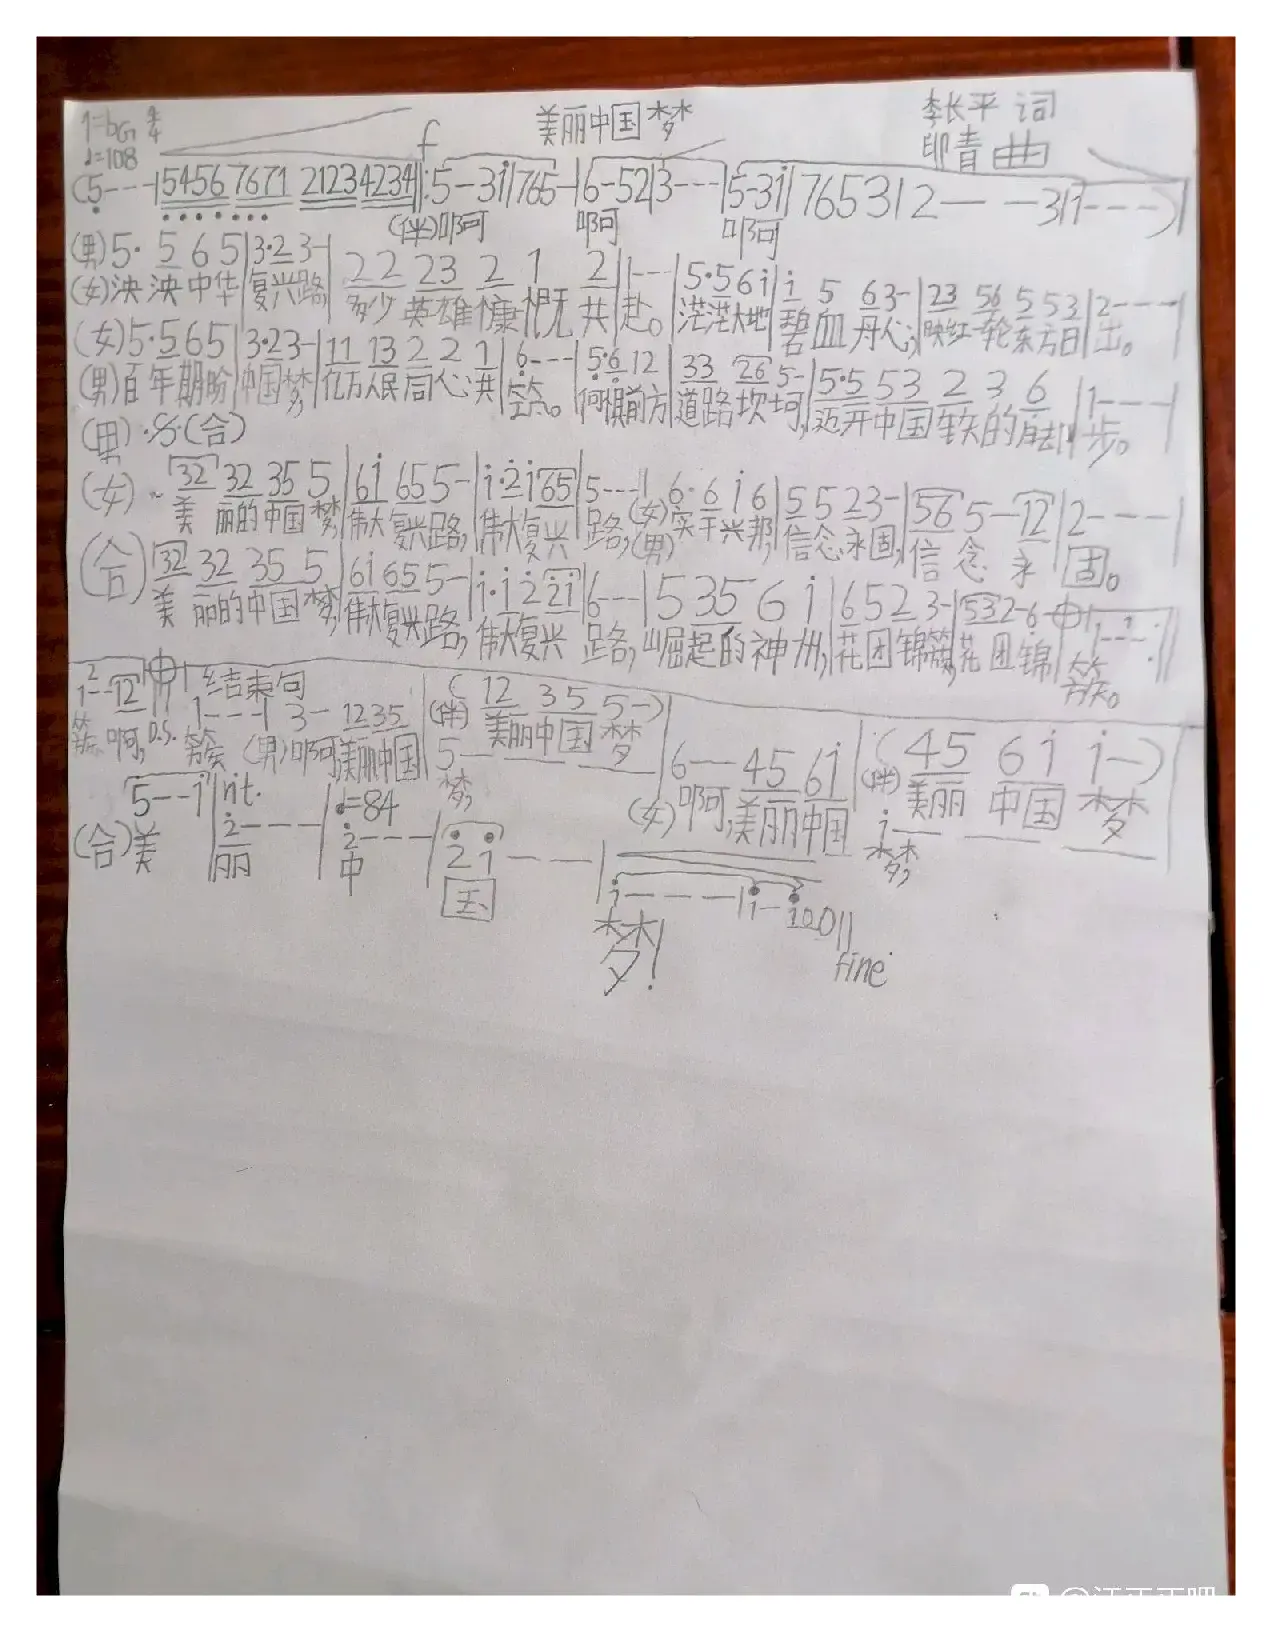 1=bG 4/4 美丽中国梦 李长平 词
♩=108 f 印青 曲
(5---|5456 7671 2123 4234|‖:5-3i|765-|6-52|3---|5-3i|7653|2---3|1---)|
(伴)啊 啊 啊
(男)5· 5 6 5|3·2 3-|22 23 2 1 2|1---|5·5 6 i|i 5 63-|23 56 5 53|2---|
(女)泱泱中华 复兴路, 多少英雄慷慨共赴。 茫茫大地 碧血丹心, 映红一轮东方日出。
(女)5·5 6 5|3·2 3-|11 13 2 2 1|6---|5·6 12|33 26 5-|5·5 53 2 3 6|1---|
(男)百年期盼 中国梦, 亿万人民同心共筑。 何惧前方道路坎坷, 迈开中国铁的脚步。
(男)·𝄋·(合)
(女)~32 32 35 5|6i 65 5-|i·2i65|5---|6·6 i 6|5 5 23-|56 5-12|2---|
美丽的中国梦, 伟大复兴路, 伟大复兴路, (女)(男)实干兴邦, 信念永固, 信念永固。
(合)32 32 35 5|6i 65 5-|i·i 2 2i|6---|5 35 6 i|6 5 2 3-|532-6-|1---:‖
美丽的中国梦, 伟大复兴路, 伟大复兴路, 崛起的神州, 花团锦簇, 花团锦簇。
2 结束句
1--12|1---|3-1235|(12 35 5-)
簇 啊, D.S. 簇 (男)啊,美丽中国 (伴)美丽中国梦
5---|6--45 6i|(45 6i i-)
梦, (女)啊,美丽中国 (伴)美丽中国梦
i---
梦,
5--i|rit. 2---|♩=84 2---|2i--|i---|i-i00‖
(合)美丽中国梦!
fine